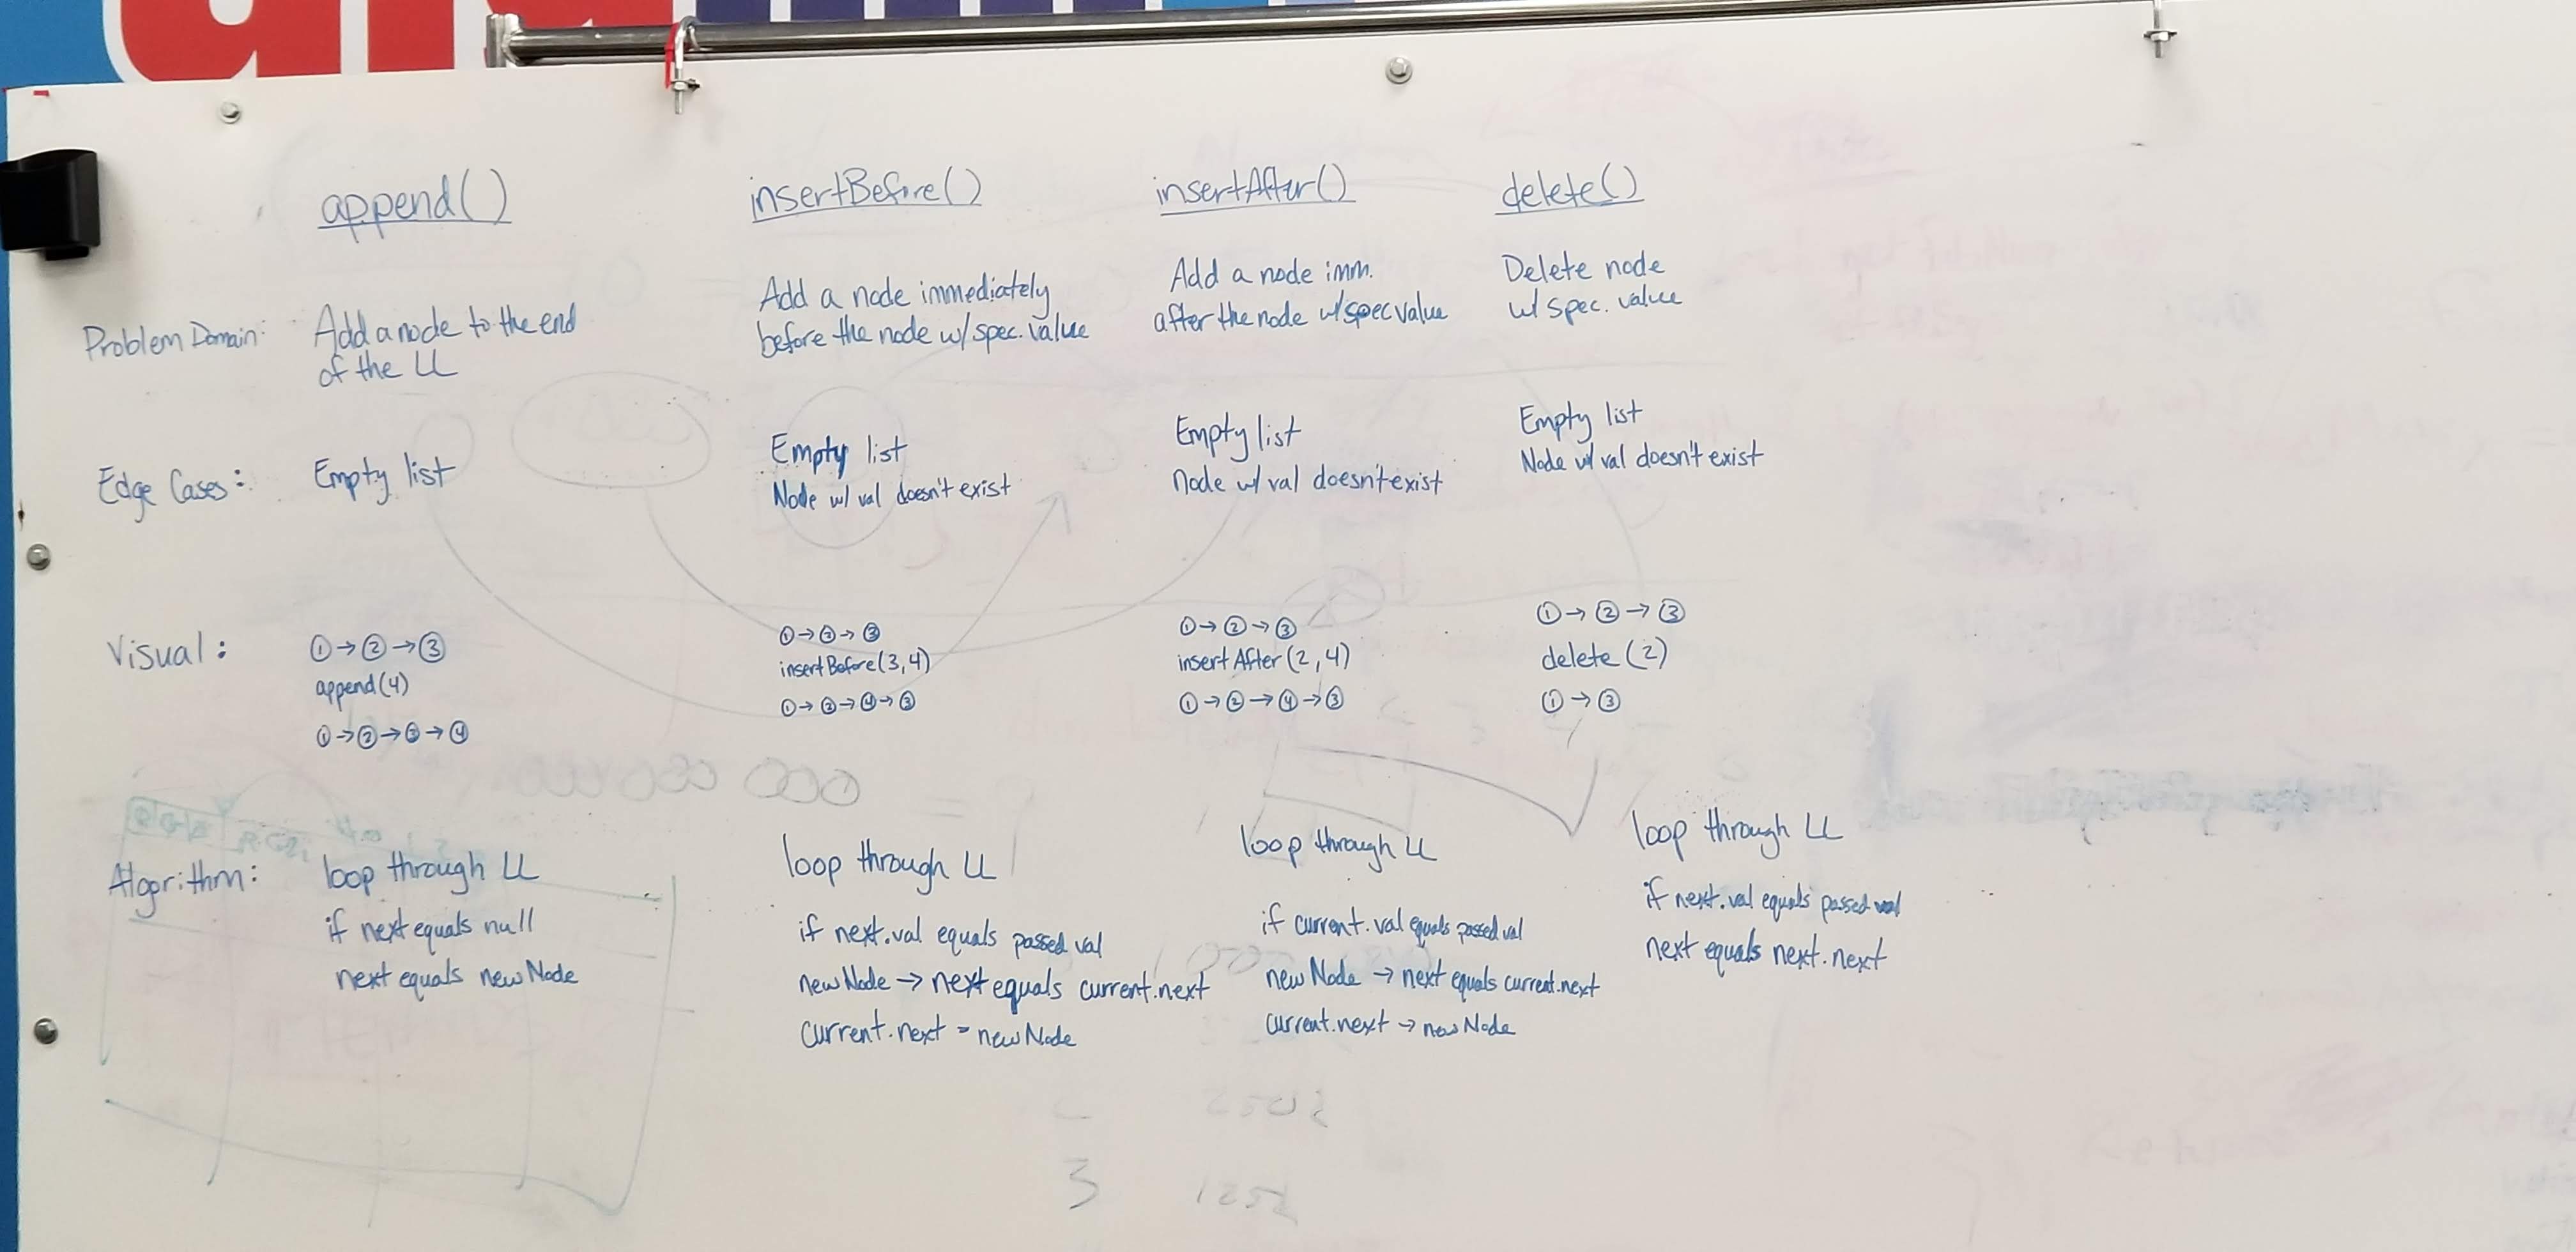 append()
insertBefore()
insertAfter()
delete()
Problem Domain:
Add a node to the end
of the LL
Add a node immediately
before the node w/ spec. value
Add a node imm.
after the node w/ spec value
Delete node
w/ spec. value
Edge Cases:
Empty list
Empty list
Node w/ val doesn't exist
Empty list
Node w/ val doesn't exist
Empty list
Node w/ val doesn't exist
Visual:
1 → 2 → 3
append(4)
1 → 2 → 3 → 4
1 → 2 → 3
insertBefore(3,4)
1 → 2 → 4 → 3
1 → 2 → 3
insertAfter(2,4)
1 → 2 → 4 → 3
1 → 2 → 3
delete(2)
1 → 3
Algorithm:
loop through LL
if next equals null
next equals newNode
loop through LL
if next.val equals passed val
newNode → next equals current.next
current.next = newNode
loop through LL
if current.val equals passed val
newNode → next equals current.next
current.next → newNode
loop through LL
if next.val equals passed val
next equals next.next